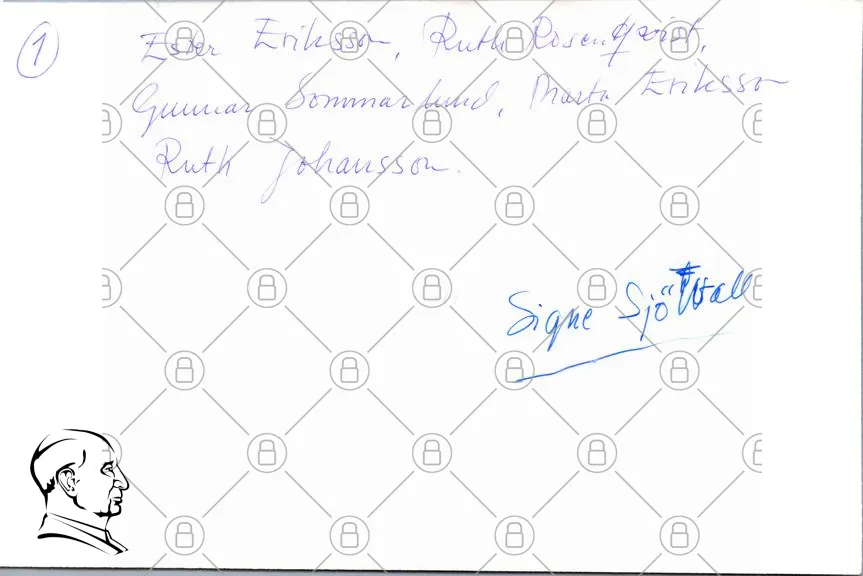 1
Ester Eriksson, Ruth Rosenqvist,
Gunnar Sommarlund, Marta Eriksson
Ruth Johansson.
Signe